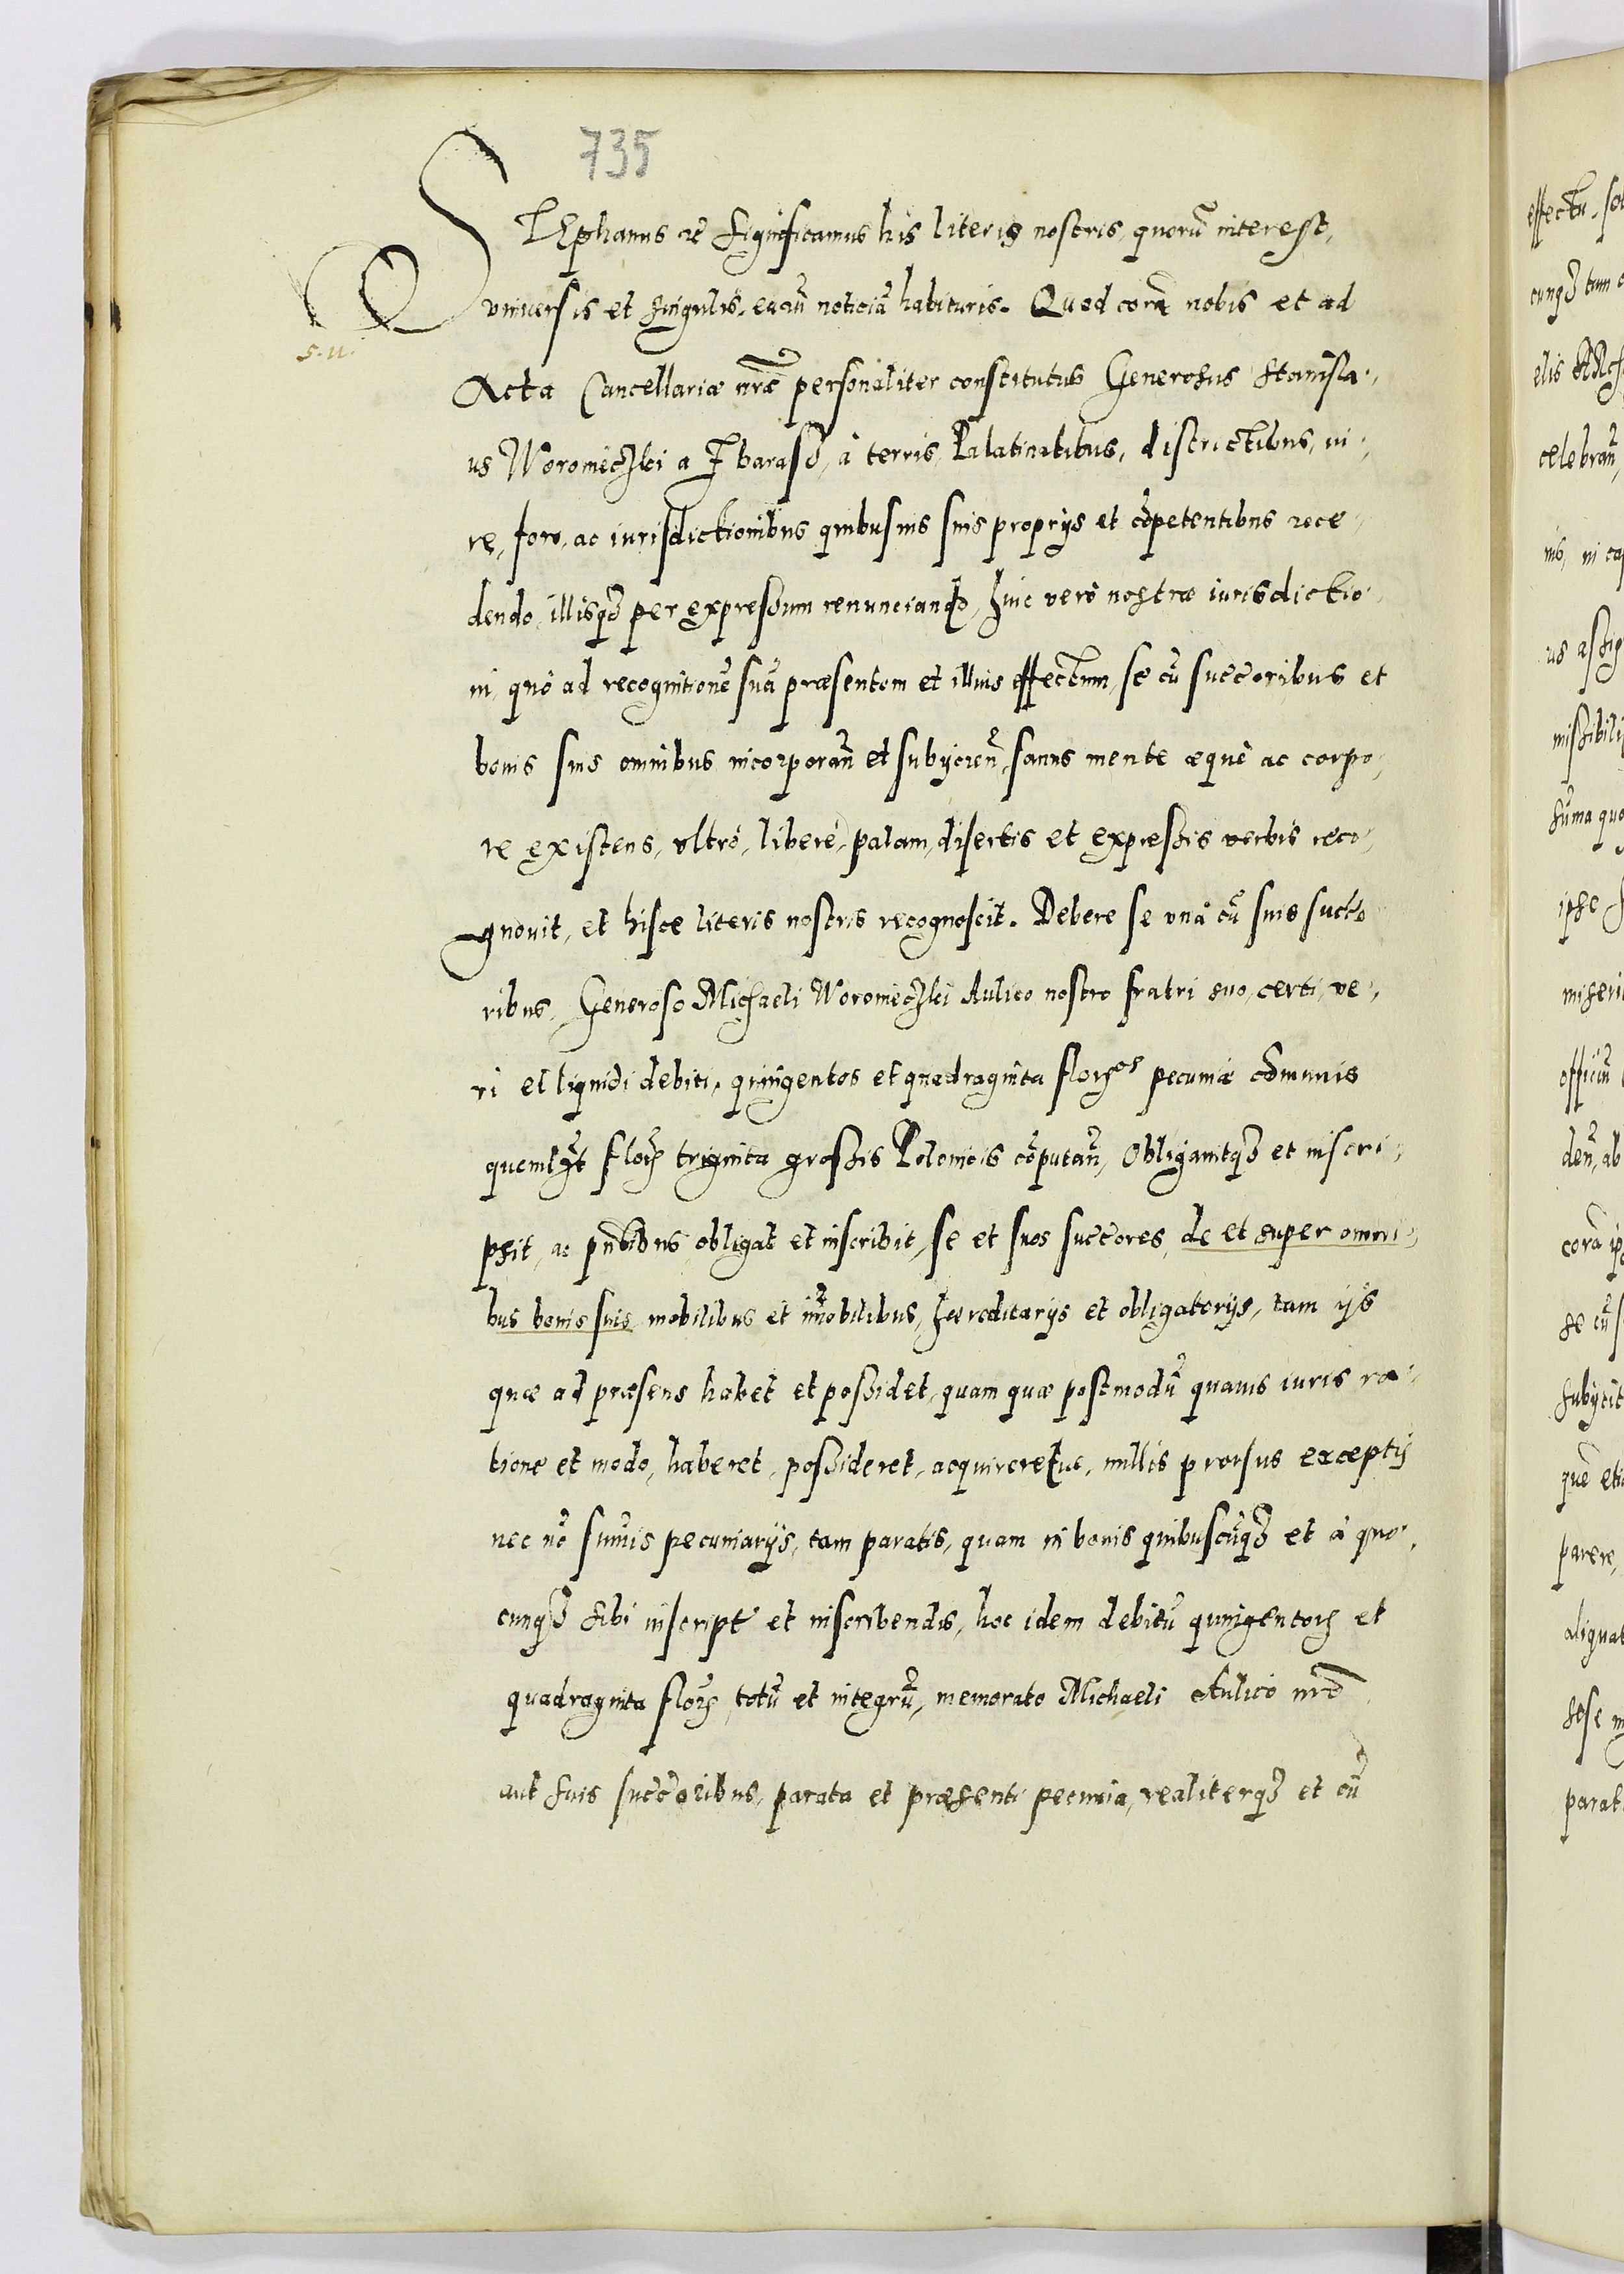 735
STEphanus etc Significamus his literis nostris, quorũ interest,
vniuersis et singulis, earũ noticiã habituris. Quod corã nobis et ad
s. u.
Acta Cancellariæ nrẽ personaliter constitutus Generosus Stanisla,
us Woromeczki a Zbarasz, à terris, Palatinatibus, districtibus, iu,
re, foro, ac iurisdictionibus quibusuis suis proprijs et cõpetentibus rece,
dendo, illisqз per expressum renunciando, huic verò nostræ iurisdictio,
ni, quò ad recognitionẽ suã præsentem et illius effectum, se cũ succoribus et
bonis suis omnibus incorporañ et subijcieñ, sanus mente æquè ac corpo,
re existens, vltrò, liberè, palam, disertis et expressis verbis reco,
gnouit, et hisce literis nostris recognoscit. Debere se vnà cũ suis succo
ribus, Generoso Michaeli Woromeczki Aulico nostro fratri suo, certi, ve,
ri et liquidi debiti, quingentos et quadraginta florenos pecuniæ cõmunis
quemlꝫt floꝝ triginta grossis Polonicis cõputañ, Obligauitqз et inscri,
psit, ac pñtibus obligat et inscribit, se et suos succores, de et super omni,
bus bonis suis mobilibus et im̃obilibus, hæreditarijs et obligatorijs, tam ijs
quæ ad præsens habet et possidet, quam quæ postmodũ quauis iuris ra,
tione et modo, haberet, possideret, acquireretue, nullis prorsus exceptis
nec nõ sum̃is pecuniarijs, tam paratis, quam in bonis quibuscũqз et à quo,
cunqз sibi inscript et inscribendis, hoc idem debitũ quingentoꝝ et
quadraginta floꝝ, totũ et integrũ, memorato Michaeli Aulico nrõ
aut suis succoribus, parata et præsenti pecunia, realiterqз et cũ